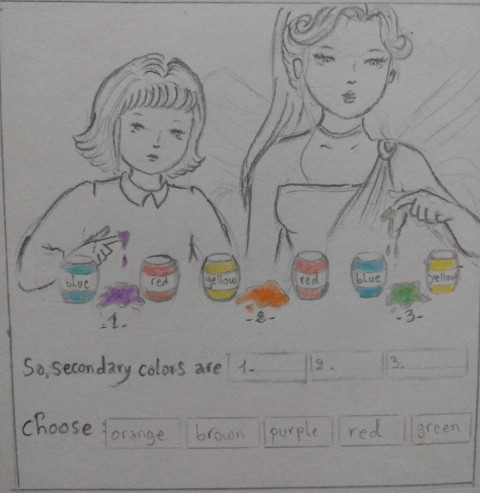 blue red yellow red blue yellow
-1- -2- -3-
So, secondary colors are 1- 2. 3.
Choose : orange brown purple red green